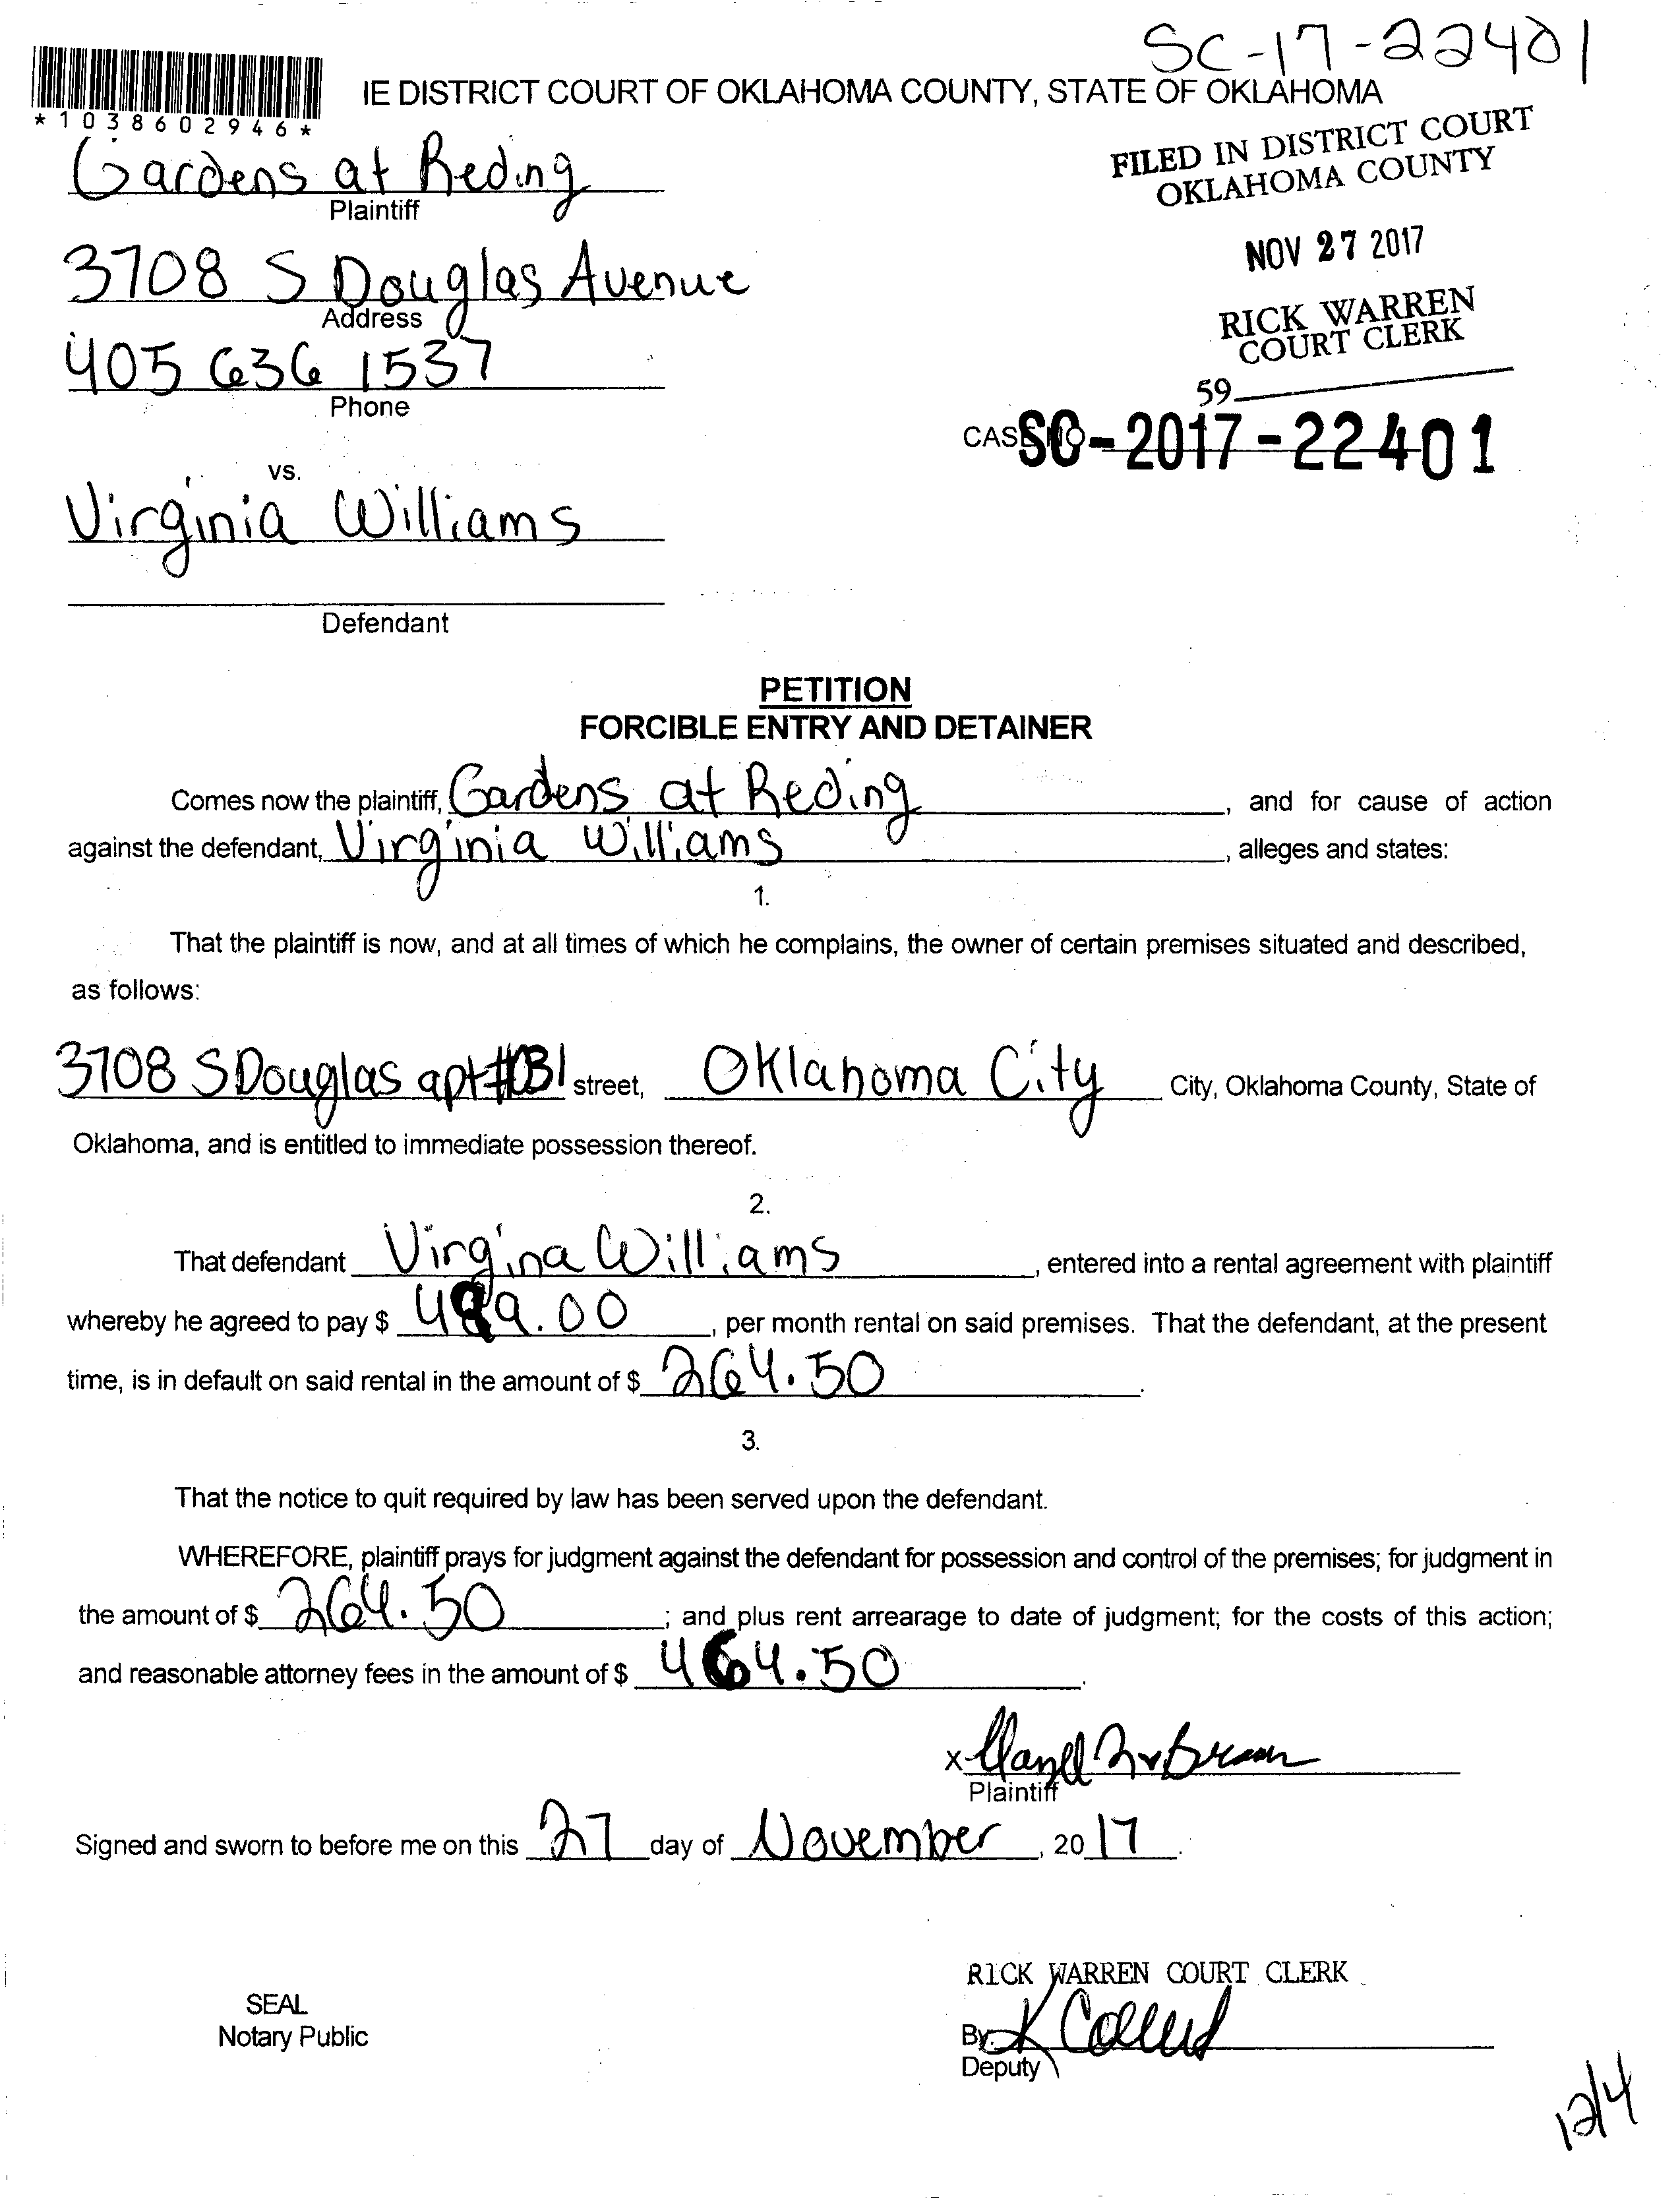 SC-17-22401
IE DISTRICT COURT OF OKLAHOMA COUNTY, STATE OF OKLAHOMA
*1038602946*
FILED IN DISTRICT COURT
OKLAHOMA COUNTY
Gardens at Reding
Plaintiff
NOV 27 2017
3708 S Douglas Avenue
Address
RICK WARREN
COURT CLERK
405 636 1537
Phone
59
CASE NO SC-2017-22401
vs.
Virginia Williams
Defendant
PETITION
FORCIBLE ENTRY AND DETAINER
Comes now the plaintiff, Gardens at Reding, and for cause of action
against the defendant, Virginia Williams, alleges and states:
1.
That the plaintiff is now, and at all times of which he complains, the owner of certain premises situated and described,
as follows:
3708 S Douglas apt # street, Oklahoma City City, Oklahoma County, State of
Oklahoma, and is entitled to immediate possession thereof.
2.
That defendant Virgina Williams, entered into a rental agreement with plaintiff
whereby he agreed to pay $ , per month rental on said premises. That the defendant, at the present
time, is in default on said rental in the amount of $ 264.50.
3.
That the notice to quit required by law has been served upon the defendant.
WHEREFORE, plaintiff prays for judgment against the defendant for possession and control of the premises; for judgment in
the amount of $ 264.50; and plus rent arrearage to date of judgment; for the costs of this action;
and reasonable attorney fees in the amount of $ 464.50.
x
Plaintiff
Signed and sworn to before me on this 27 day of November, 2017.
RICK WARREN COURT CLERK
SEAL
Notary Public
By: K
Deputy
12/4